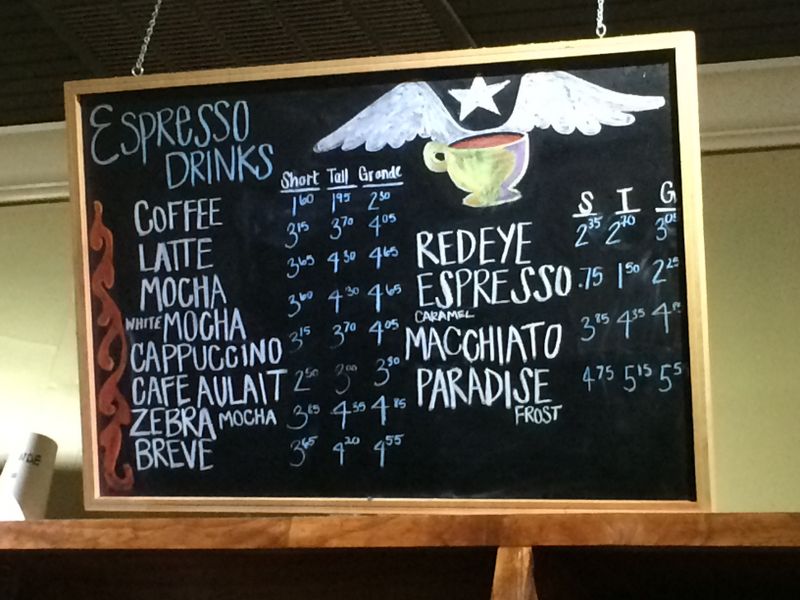 Espresso
DRINKS
Short Tall Grande
COFFEE 1.60 1.95 2.30
LATTE 3.15 3.70 4.05
MOCHA 3.65 4.30 4.65
WHITE MOCHA 3.60 4.30 4.65
CAPPUCCINO 3.15 3.70 4.05
CAFE AULAIT 2.50 3.00
ZEBRA MOCHA 4.85
BREVE 3.65 4.20 4.55
S T G
REDEYE 2.35 2.70 3.05
ESPRESSO .75 1.50 2.25
CARAMEL
MACCHIATO 3.85 4.35
PARADISE 4.75 5.15
FROST